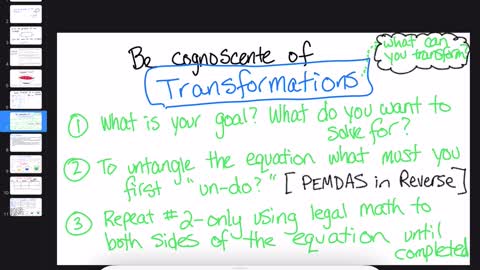 Be cognoscente of
what can
you transform?
Transformations
① What is your goal? What do you want to
solve for?
② To untangle the equation what must you
first "un-do?" [PEMDAS in Reverse]
③ Repeat #2-only using legal math to
both sides of the equation until
completed